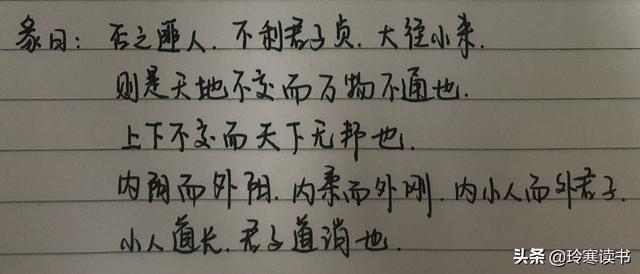 彖曰：否之匪人，不利君子贞，大往小来，
则是天地不交而万物不通也.
上下不交而天下无邦也.
内阴而外阳.内柔而外刚.内小人而外君子.
小人道长.君子道消也.
头条 @玲寒读书